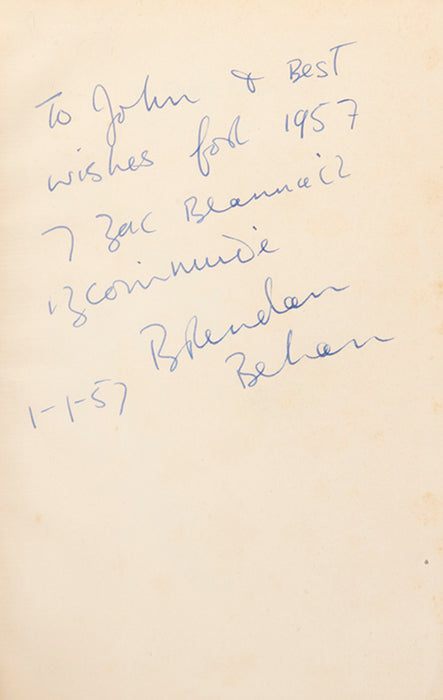 To John & Best
wishes for 1957
⁊ gac Beannaċt
i gcomnuide
Brendan
Behan
1-1-57